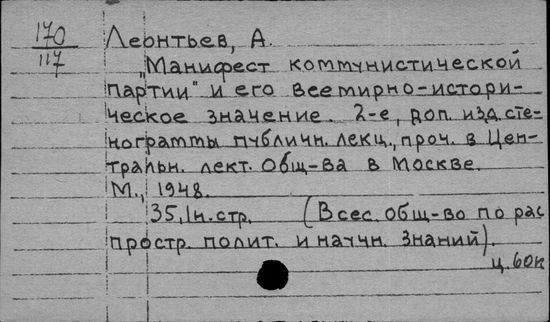 170
117
Леонтьев, А.
"Манифест коммунистической
партии" и его всемирно-истори-
ческое значение. 2-е, доп. изд. сте-
нограммы публичн. лекц., проч. в Цен-
тральн. лект. Общ-ва в Москве.
М., 1948.
35, 1 н. стр. (Всес. общ-во по рас
простр. полит. и научн. знаний).
ц. 60к